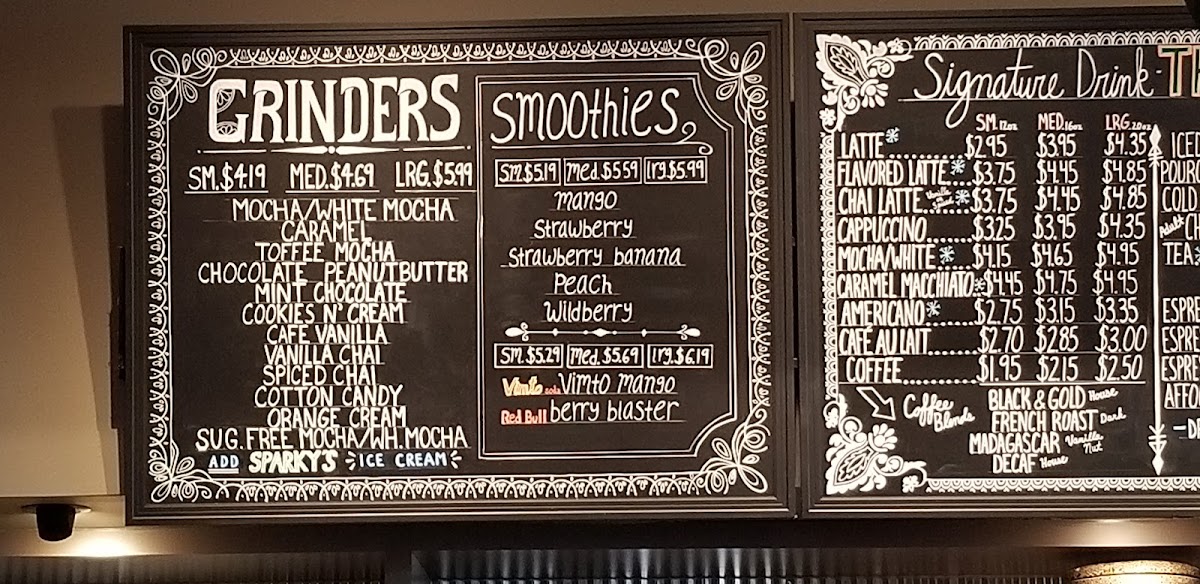 GRINDERS
SM. $4.19 MED. $4.69 LRG. $5.99
MOCHA/WHITE MOCHA
CARAMEL
TOFFEE MOCHA
CHOCOLATE PEANUTBUTTER
MINT CHOCOLATE
COOKIES N' CREAM
CAFE VANILLA
VANILLA CHAI
SPICED CHAI
COTTON CANDY
ORANGE CREAM
SUG. FREE MOCHA/WH. MOCHA
ADD SPARKY'S ICE CREAM
Smoothies
Sm. $5.19 med. $5.59 lrg. $5.99
mango
Strawberry
Strawberry banana
Peach
Wildberry
Sm. $5.29 med. $5.69 lrg. $6.19
Vimto soda Vimto mango
Red Bull berry blaster
Signature Drink
SM. 12oz MED. 16oz LRG. 20oz
LATTE* $2.95 $3.95 $4.35
FLAVORED LATTE* $3.75 $4.45 $4.85
CHAI LATTE Vanilla * $3.75 $4.45 $4.85
CAPPUCCINO $3.25 $3.95 $4.35
MOCHA/WHITE* $4.15 $4.65 $4.95
CARAMEL MACCHIATO* $4.45 $4.75 $4.95
AMERICANO* $2.75 $3.15 $3.35
CAFÉ AU LAIT $2.70 $2.85 $3.00
COFFEE $1.95 $2.15 $2.50
Coffee Blends
BLACK & GOLD House
FRENCH ROAST Dark
MADAGASCAR Vanilla Nut
DECAF House
TH
ICE
POUR
COLD
Adult CH
TEA*
ESPR
ESPRE
ESPRE
AFFO